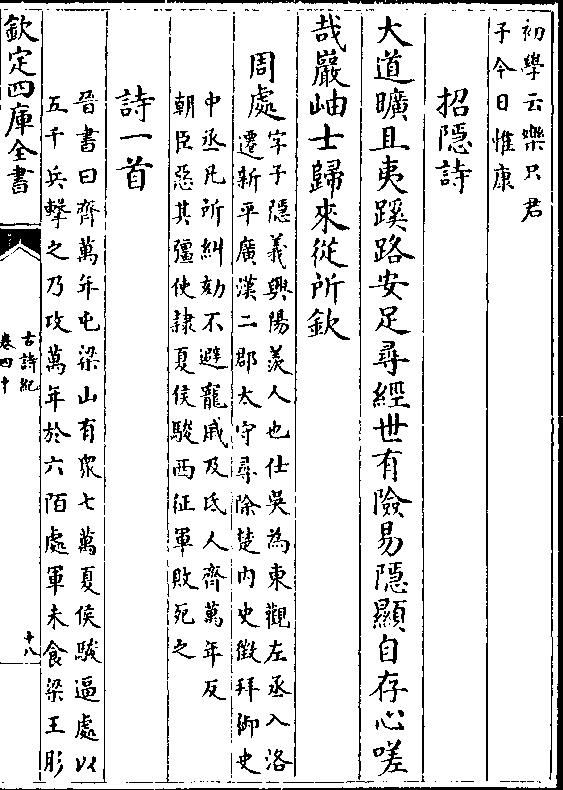 初學云樂只君
子今日惟康
招隱詩
大道曠且夷蹊路安足尋經世有險易隱顯自存心嗟
哉巖岫士歸來從所欽
周處
字子隱義興陽羨人也仕吳為東觀左丞入洛
遷新平廣漢二郡太守尋除楚內史徵拜御史
中丞凡所糾劾不避寵戚及氐人齊萬年反
朝臣惡其彊使隸夏侯駿西征軍敗死之
詩一首
晉書曰齊萬年屯梁山有眾七萬夏侯駿逼處以
五千兵擊之乃攻萬年於六陌處軍未食梁王肜
欽定四庫全書
古詩紀
卷四十
十八